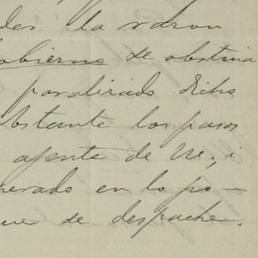 des. la razon
obierno de obstina
paralizado dicho
obstante los pasos
agente de Ue; i
perado en lo po-
que se despache.